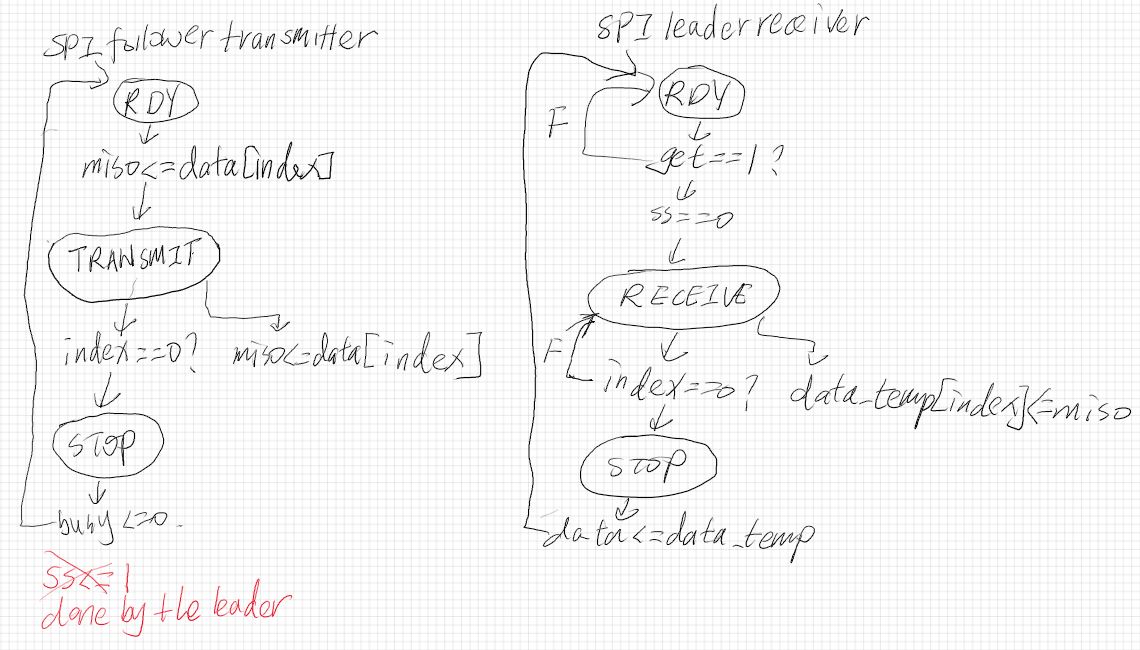 SPI follower transmitter
RDY
miso<=data[index]
TRANSMIT
index==0?
miso<=data[index]
STOP
busy<=0
ss<=1
done by the leader
SPI leader receiver
RDY
F
get==1?
ss==0
RECEIVE
F
index==0?
data_temp[index]<=miso
STOP
data<=data_temp